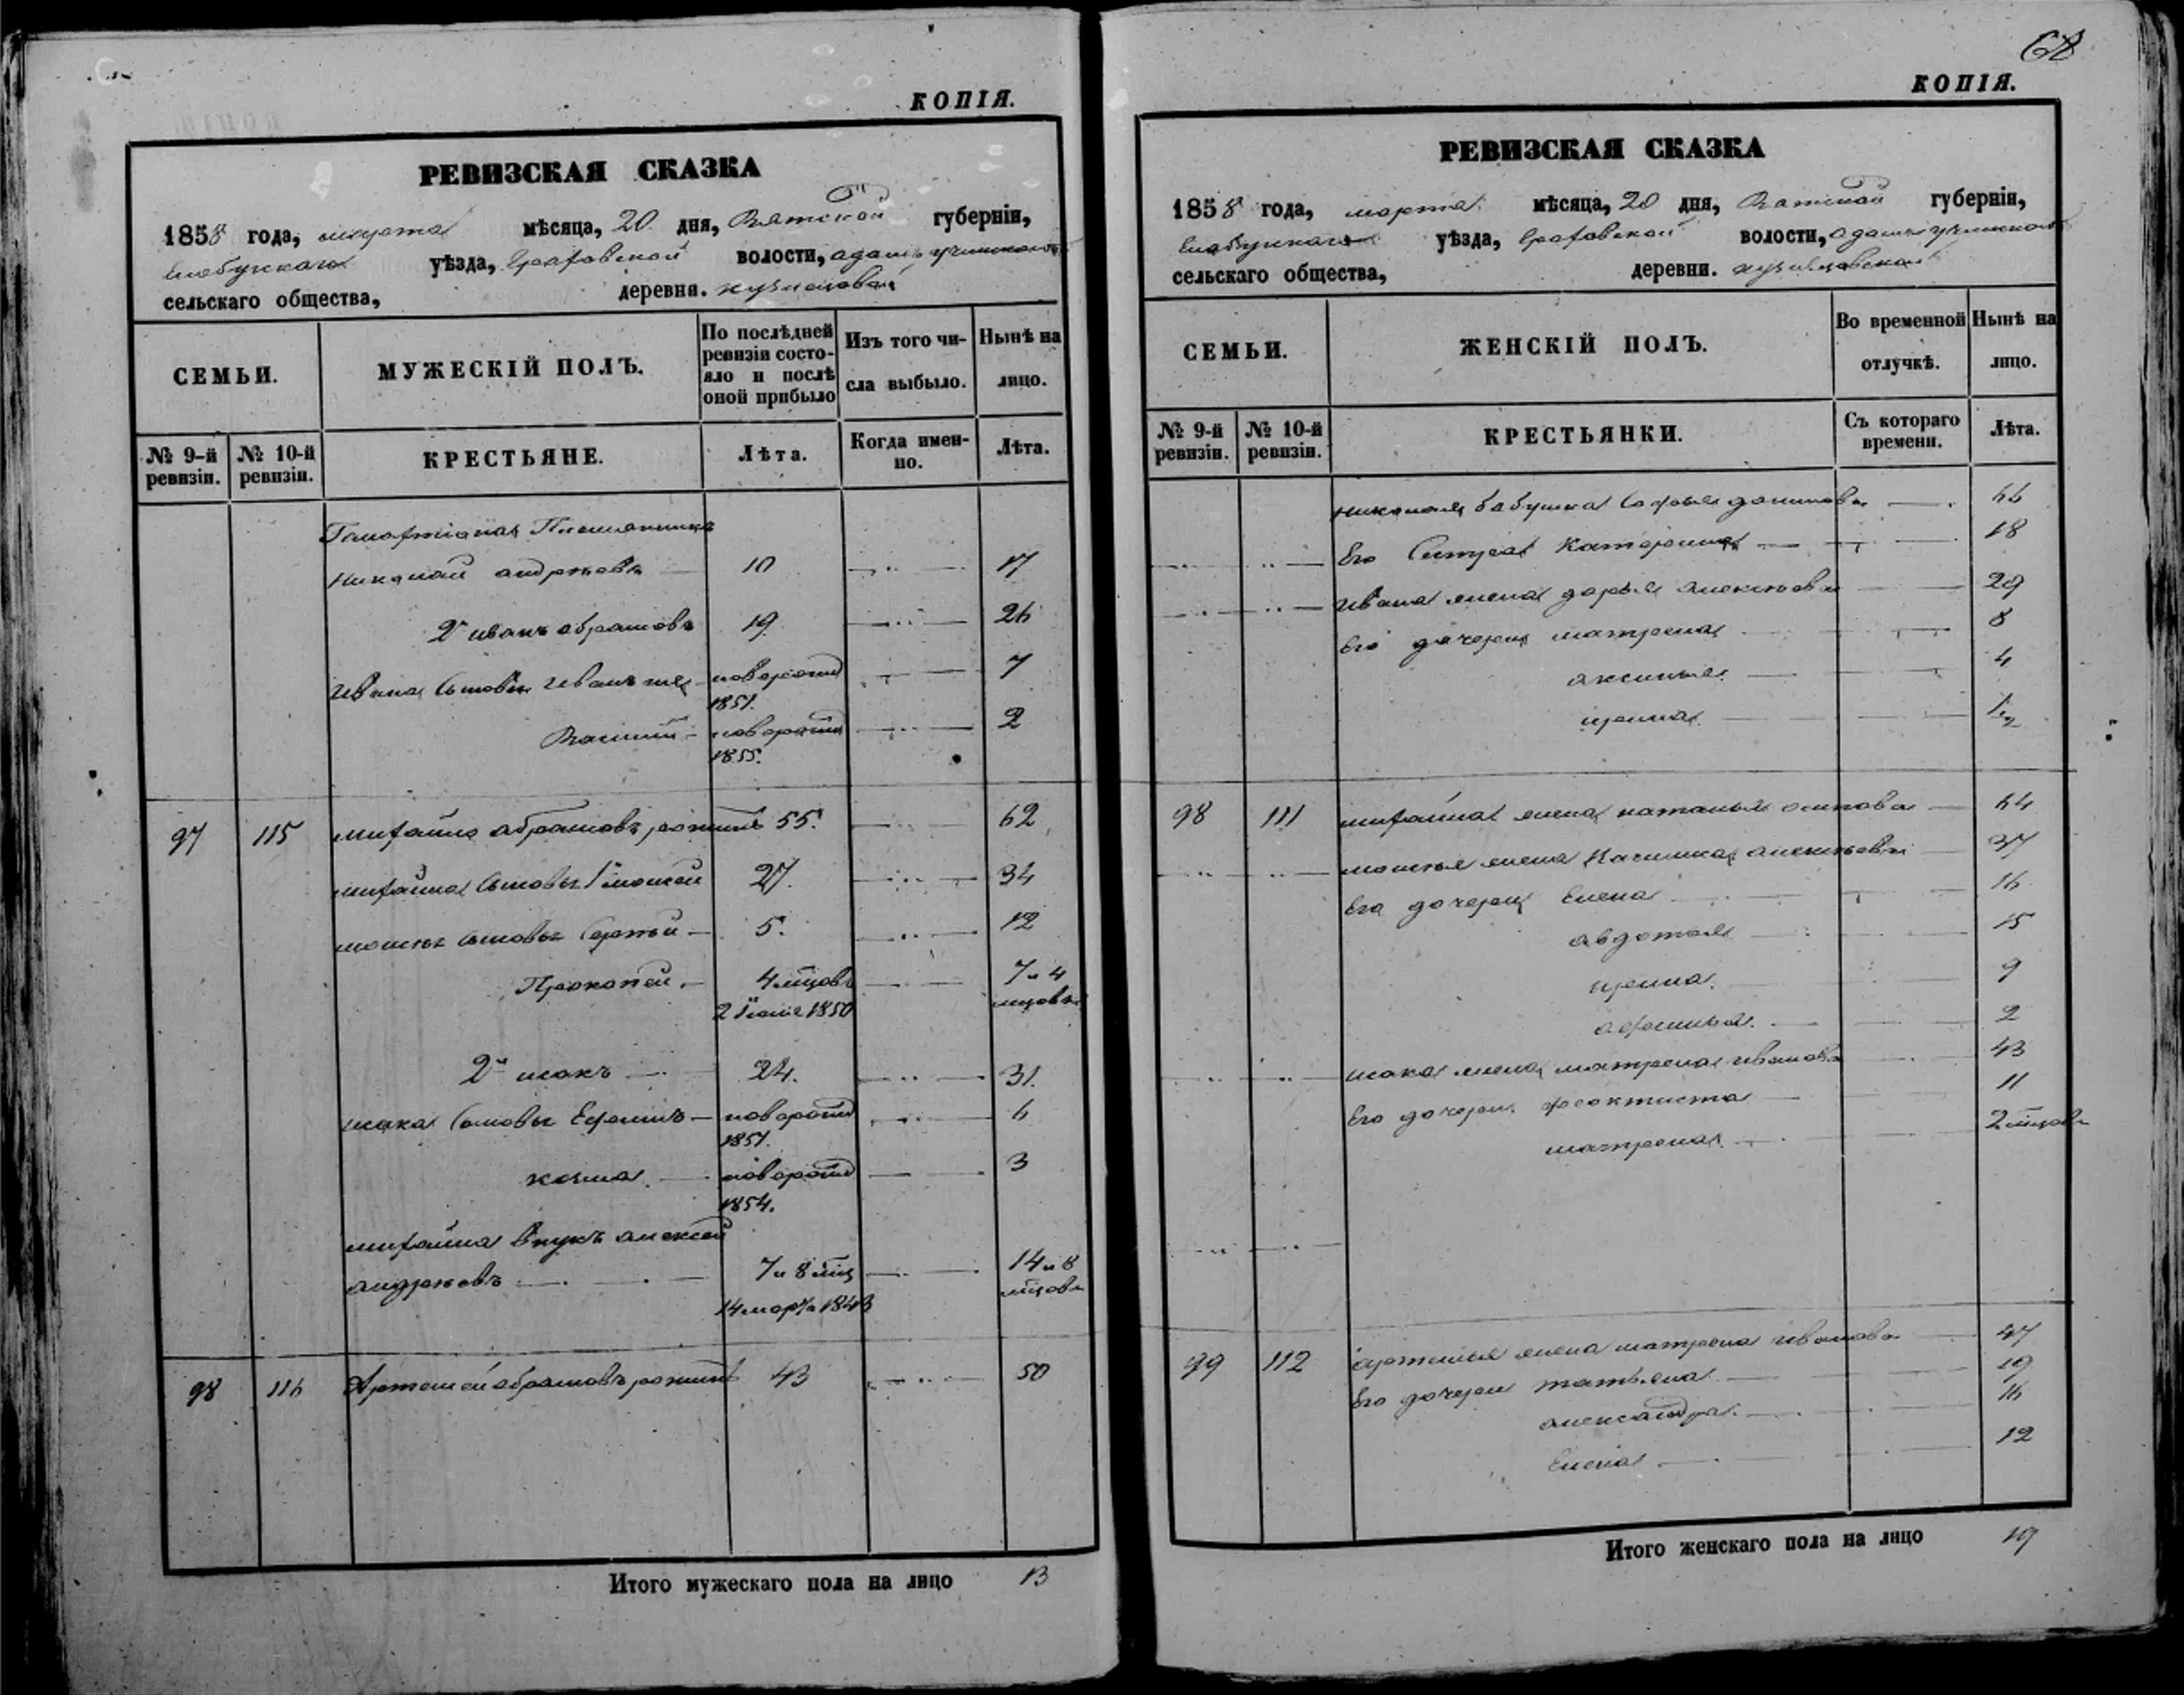 КОПІЯ.
РЕВИЗСКАЯ СКАЗКА
1858 года, марта мѣсяца, 20 дня, Вятской губерніи,
Елабужскаго уѣзда, волости,
сельскаго общества, деревни.
СЕМЬИ.
МУЖЕСКІЙ ПОЛЪ.
По послѣдней ревизіи состо-
яло и послѣ оной прибыло
Изъ того чи-
сла выбыло.
Нынѣ на
лицо.
№ 9-й ревизіи.
№ 10-й ревизіи.
КРЕСТЬЯНЕ.
Лѣта.
Когда имен-
но.
Лѣта.
Племянникъ
Николай Андреевъ 10 17
2й Иванъ Абрамовъ 19 26
Ивана сыновья Иванъ же новорожд 7
1851.
Василій новорожд 2
1855.
97 115 Михайло Абрамовъ 55. 62
Михайла сыновья 1й Мосей 27. 34
Мосея сыновья Сергей 5. 12
Прокопей 4 мцовъ 7 и 4
2 1850 мцовъ
2й Исакъ 24. 31.
Исака сыновья Ефимъ новорожд 6
1851.
Козма новорожд 3
1854.
Михайла внукъ Алексей
Андреевъ 7 и 8 мцъ 14 и 8
14 марта 1843 мцовъ
98 116 Артемей Абрамовъ 43 50
Итого мужескаго пола на лицо 13
68
КОПІЯ.
РЕВИЗСКАЯ СКАЗКА
1858 года, марта мѣсяца, 20 дня, Вятской губерніи,
Елабужскаго уѣзда, волости,
сельскаго общества, деревни.
СЕМЬИ.
ЖЕНСКІЙ ПОЛЪ.
Во временной
отлучкѣ.
Нынѣ на
лицо.
№ 9-й ревизіи.
№ 10-й ревизіи.
КРЕСТЬЯНКИ.
Съ котораго
времени.
Лѣта.
Николая бабушка Софья 66
Его сестра Катерина 18
Ивана жена Дарья Алексеева 29
Его дочери Матрена 8
Аксинья 4
Ирина 1/2
98 111 Михайла жена Наталья Осипова 64
Мосея жена Алексеева 37
Его дочери Елена 16
Авдотья 15
Ирина 9
Афимья 2
Исака жена Матрена Иванова 43
Его дочери Феоктиста 11
Матрена 2 мцовъ
99 112 Артемья жена Матрена Иванова 47
Его дочери Татьяна 19
Александра 16
Елена 12
Итого женскаго пола на лицо 19